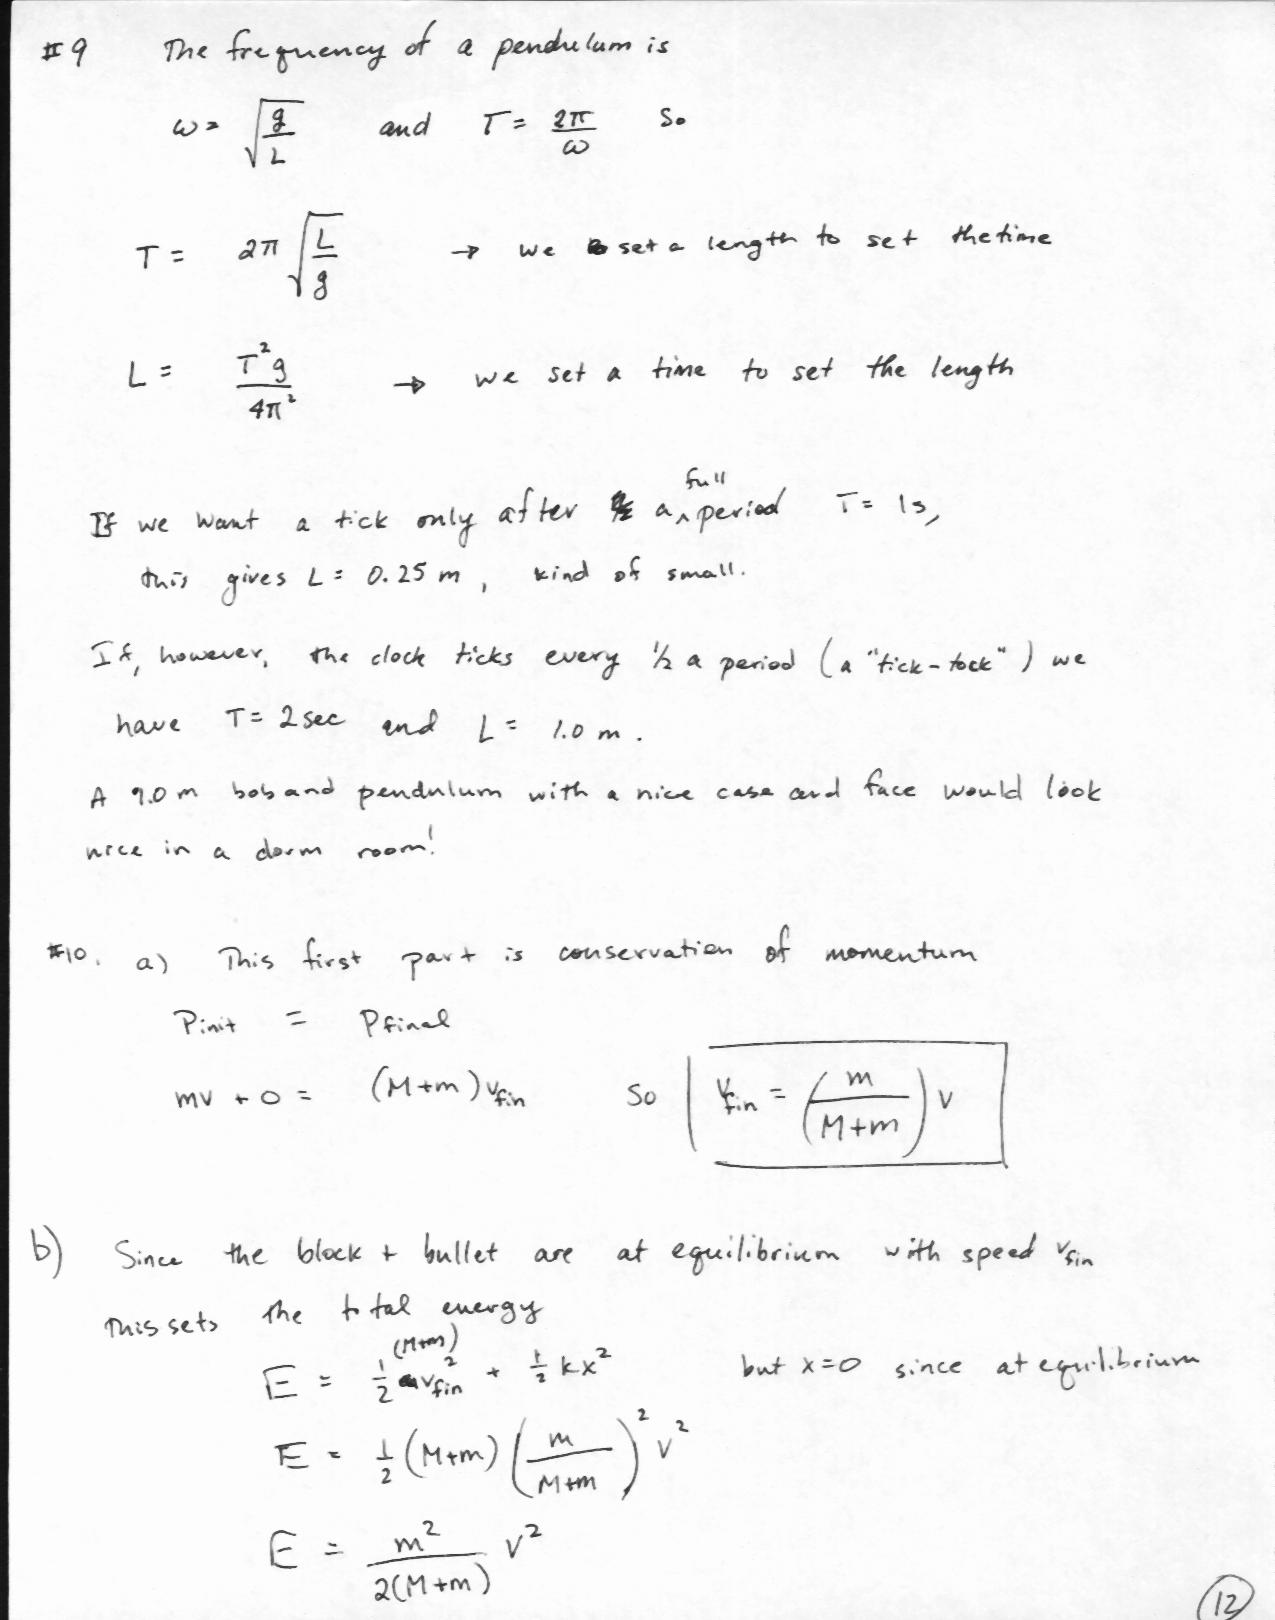 #9 The frequency of a pendulum is
ω = √(g/L) and T = 2π/ω So
T = 2π √(L/g) → we set a length to set the time
L = T²g/4π² → we set a time to set the length
If we want a tick only after a full period T = 1s,
this gives L = 0.25 m, kind of small.
If, however, the clock ticks every 1/2 a period (a "tick-tock") we
have T = 2 sec and L = 1.0 m.
A 1.0 m bob and pendulum with a nice case and face would look
nice in a dorm room!
#10. a) This first part is conservation of momentum
Pinit = Pfinal
mv + 0 = (M+m) vfin so vfin = (m/(M+m)) v
b) Since the block + bullet are at equilibrium with speed vfin
This sets the total energy
E = 1/2 (M+m) vfin² + 1/2 kx² but x=0 since at equilibrium
E = 1/2 (M+m) (m/(M+m))² v²
E = m²/2(M+m) v²
12